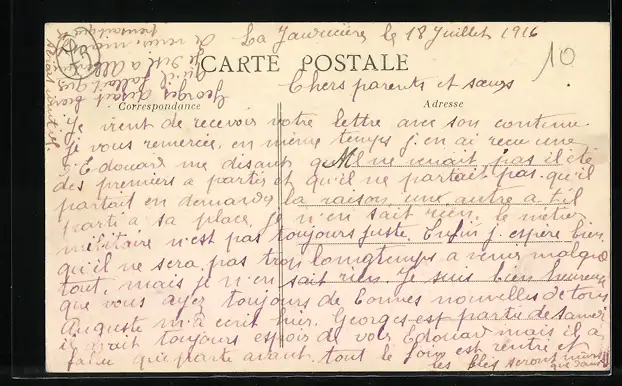 La Jaudinière le 18 Juillet 1916
10
CARTE POSTALE
Chers parents et sœurs
Correspondance
Adresse
Je vient de recevoir votre lettre avec son contenu
Je vous remercie, en même temps j'en ai recu une
d'Edouard me disant qu'il ne venait pas il été
des premiers a partir et qu'il ne partait pas qu'il
partait en demander la raison une autre a t'il
parti a sa place je n'en sait rien. le métier
militaire n'est pas toujours juste. Enfin j'espère bien
qu'il ne sera pas trop longtemps a venir malgré
tout, mais je n'en sait rien. Je suis bien heureux
que vous ayez toujours de bonnes nouvelles de tous
Auguste m'a ecrit hier. Georges est partie de samedi
il avait toujours espoir de voir Edouard mais il a
fallu qu'il parte avant. tout le foin est rentré et
les blés seront murs
que dans
Georges disait
qu'il fallait que
je de venir, mais